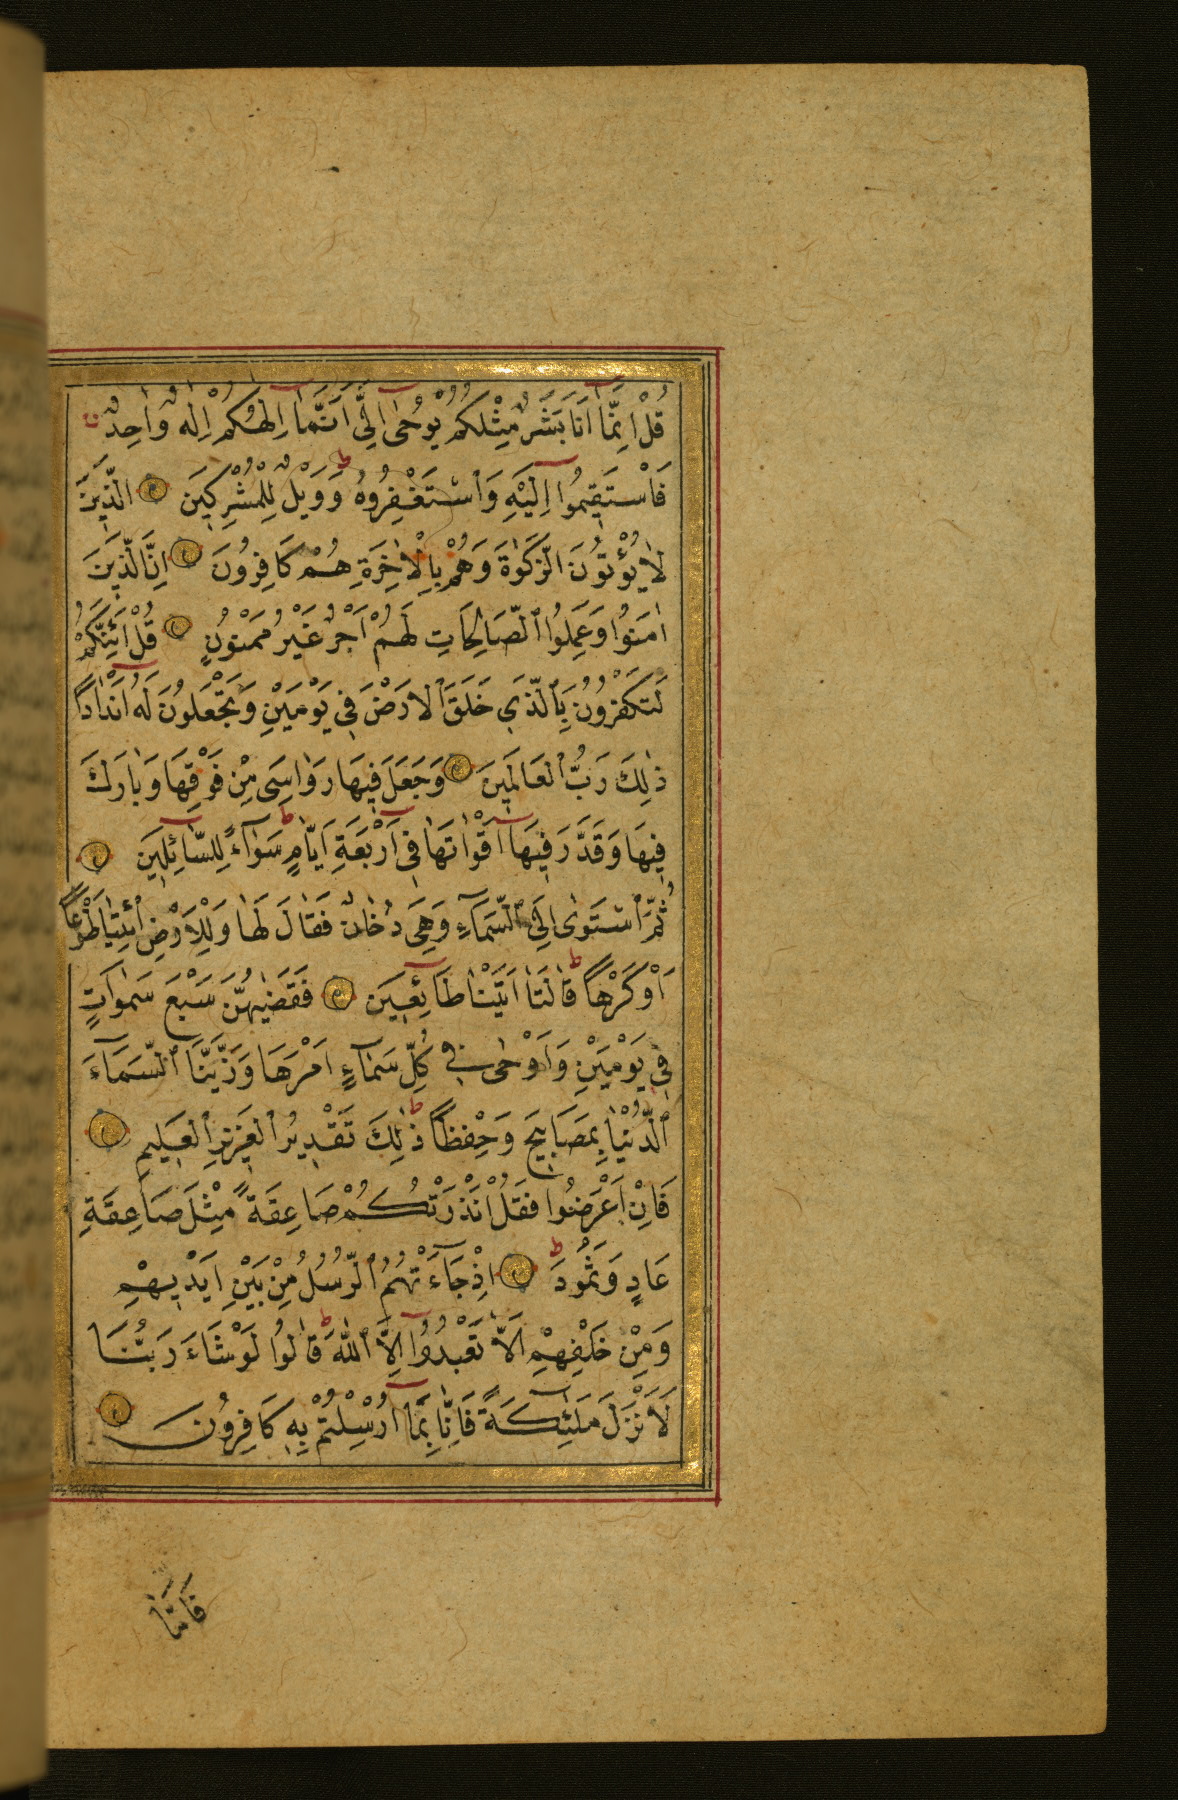 قُلْ اِنَّمَٓا اَنَا۬ بَشَرٌ مِثْلُكُمْ يُوحٰٓى اِلَيَّ اَنَّمَٓا اِلٰهُكُمْ اِلٰهٌ وَاحِدٌ
فَاسْتَقِيمُٓوا اِلَيْهِ وَاسْتَغْفِرُوهُ وَوَيْلٌ لِلْمُشْرِكِينَ الَّذِينَ
لَا يُؤْتُونَ الزَّكٰوةَ وَهُمْ بِالْاٰخِرَةِ هُمْ كَافِرُونَ اِنَّ الَّذِينَ
اٰمَنُوا وَعَمِلُوا الصَّالِحَاتِ لَهُمْ اَجْرٌ غَيْرُ مَمْنُونٍ قُلْ اَئِنَّكُمْ
لَتَكْفُرُونَ بِالَّذِي خَلَقَ الْاَرْضَ فِي يَوْمَيْنِ وَتَجْعَلُونَ لَهُٓ اَنْدَادًا
ذٰلِكَ رَبُّ الْعَالَمِينَ وَجَعَلَ فِيهَا رَوَاسِيَ مِنْ فَوْقِهَا وَبَارَكَ
فِيهَا وَقَدَّرَ فِيهَٓا اَقْوَاتَهَا فِٓي اَرْبَعَةِ اَيَّامٍ سَوَٓاءً لِلسَّٓائِلِينَ
ثُمَّ اسْتَوٰٓى اِلَى السَّمَٓاءِ وَهِيَ دُخَانٌ فَقَالَ لَهَا وَلِلْاَرْضِ ائْتِيَا طَوْعًا
اَوْ كَرْهًا قَالَتَٓا اَتَيْنَا طَٓائِعِينَ فَقَضٰيهُنَّ سَبْعَ سَمٰوَاتٍ
فِي يَوْمَيْنِ وَاَوْحٰى فِي كُلِّ سَمَٓاءٍ اَمْرَهَا وَزَيَّنَّا السَّمَٓاءَ
الدُّنْيَا بِمَصَابِيحَ وَحِفْظًا ذٰلِكَ تَقْدِيرُ الْعَزِيزِ الْعَلِيمِ
فَاِنْ اَعْرَضُوا فَقُلْ اَنْذَرْتُكُمْ صَاعِقَةً مِثْلَ صَاعِقَةِ
عَادٍ وَثَمُودَ اِذْ جَٓاءَتْهُمُ الرُّسُلُ مِنْ بَيْنِ اَيْدِيهِمْ
وَمِنْ خَلْفِهِمْ اَلَّا تَعْبُدُٓوا اِلَّا اللّٰهَ قَالُوا لَوْ شَٓاءَ رَبُّنَا
لَاَنْزَلَ مَلٰٓئِكَةً فَاِنَّا بِمَٓا اُرْسِلْتُمْ بِهِ كَافِرُونَ
فَاَمَّا